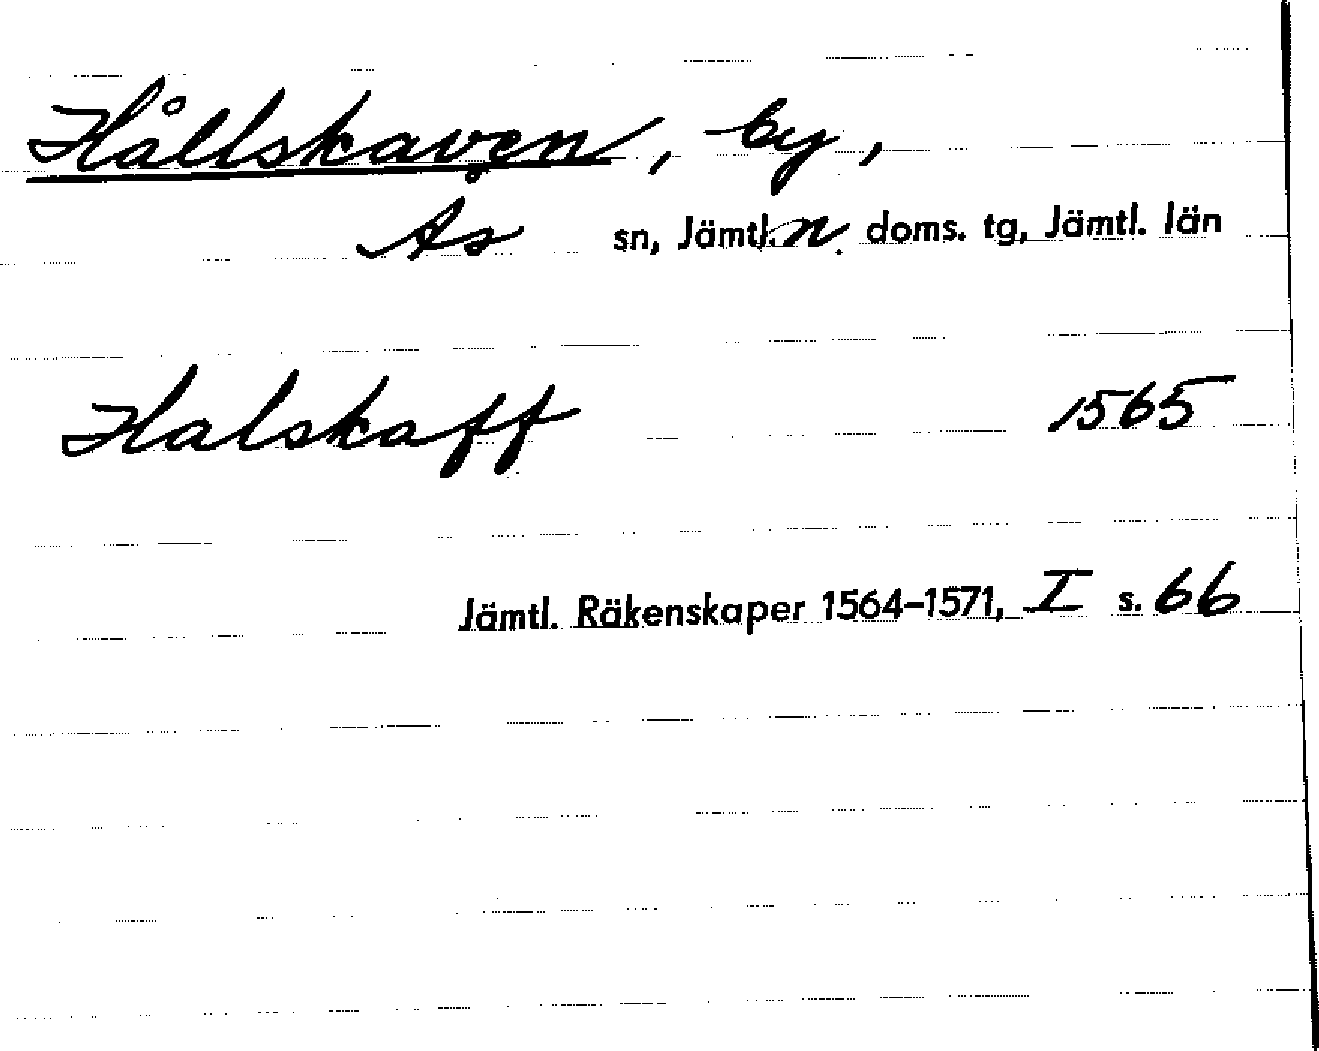 Hållskaven, by,
Ås sn, Jämtl. n. doms. tg, Jämtl. län
Halskaff 1565
Jämtl. Räkenskaper 1564-1571, I s. 66